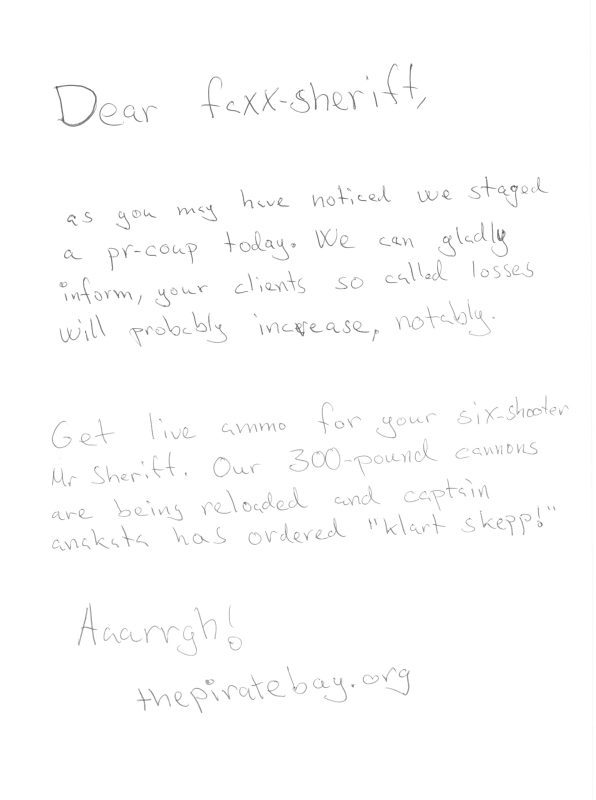 Dear faxx-sheriff,
as you may have noticed we staged
a pr-coup today. We can gladly
inform, your clients so called losses
will probably increase, notably.
Get live ammo for your six-shooter
Mr Sheriff. Our 300-pound cannons
are being reloaded and captain
anakata has ordered "klart skepp!"
Aaarrrgh!
thepiratebay.org